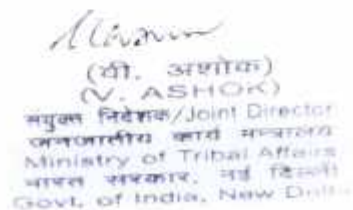 (वी. अशोक)
(V. ASHOK)
संयुक्त निदेशक/Joint Director
जनजातीय कार्य मन्त्रालय
Ministry of Tribal Affairs
भारत सरकार, नई दिल्ली
Govt. of India, New Delhi